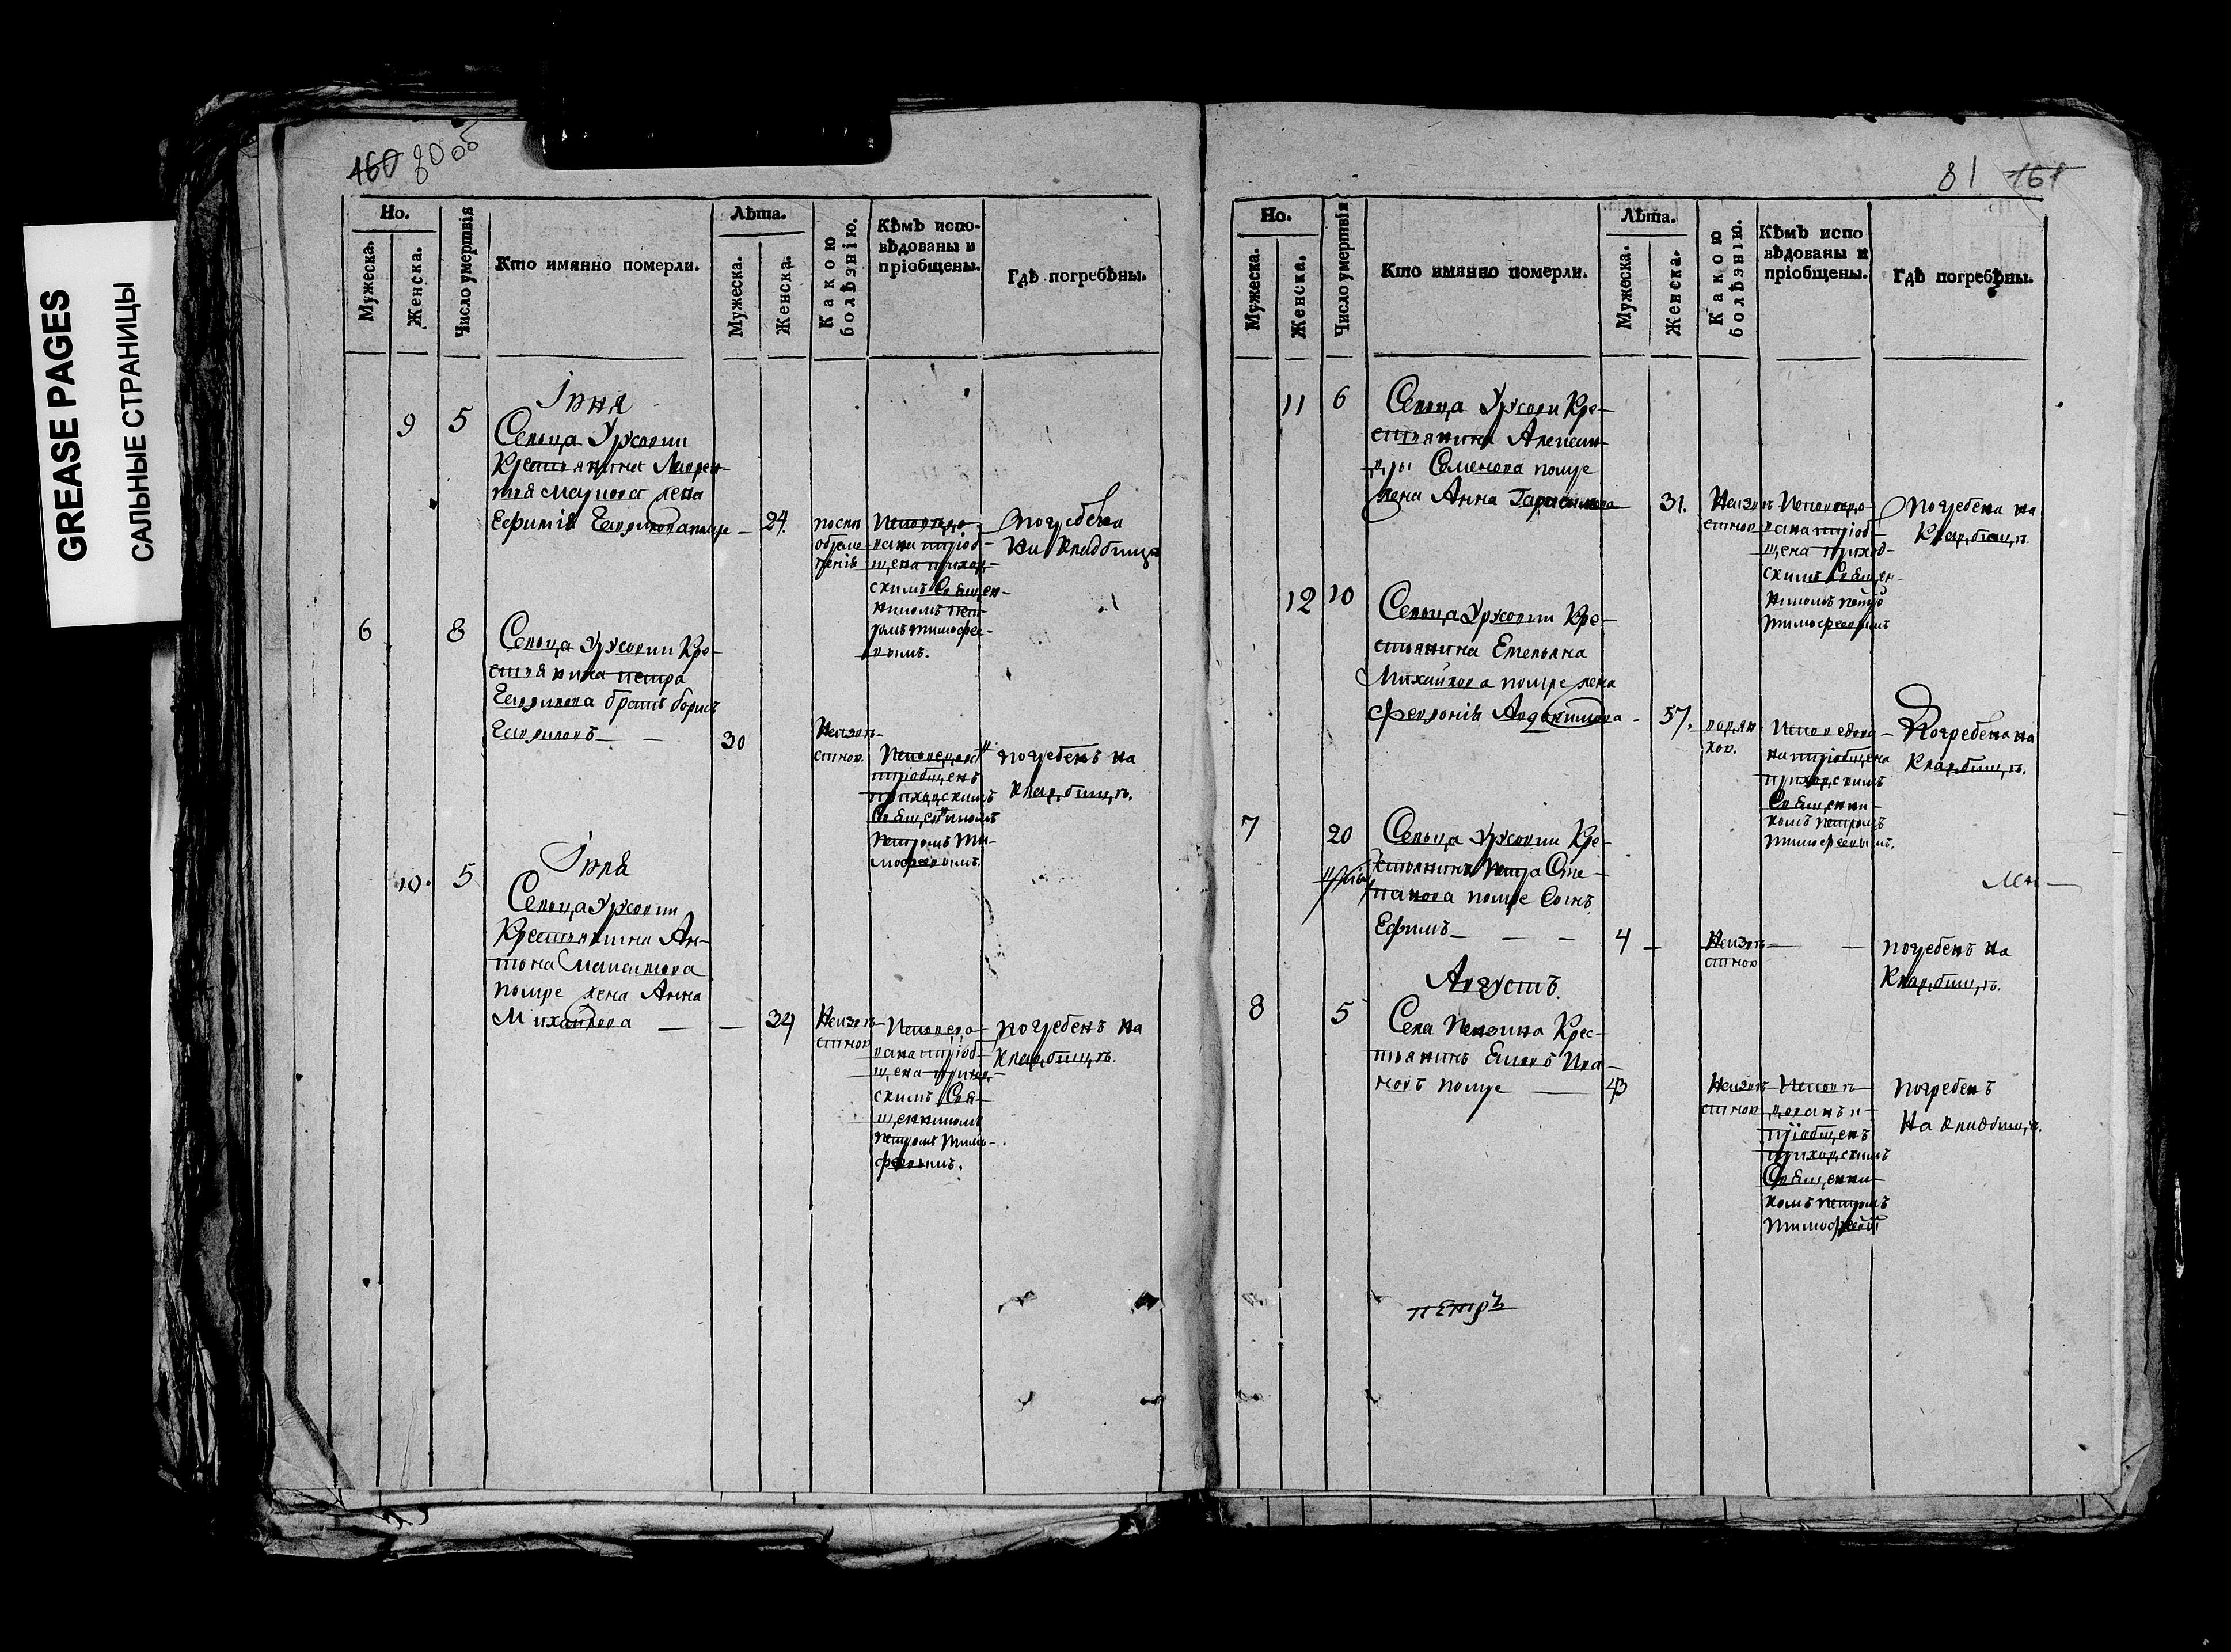 GREASE PAGES
САЛЬНЫЕ СТРАНИЦЫ
160 80об
Но.
Мужеска.
Женска.
Число умертвія
Кто имянно померли.
Лѣта.
Мужеска.
Женска.
Какою болѣзнію.
Кѣмъ испо-
вѣдованы и
пріобщены.
Гдѣ погребѣны.
Іюня
9 5
Сельца Ужовки
Крестьянина Лаврен-
тія Маркова жена
Ефимія помре — 24.
после
Исповедо-
вана пріоб-
щена приход-
скимъ Священ-
никомъ Пет-
ромъ Тимофее-
вымъ.
погребена
на кладбище
6 8
Сельца Ужовки Кре-
стьянина Петра
братъ Борисъ
30
Неизве-
стною
пріобщенъ
приходскимъ
Священникомъ
Петромъ Ти-
мофеевымъ.
погребенъ на
кладбищѣ.
Іюля
10. 5
Сельца Ужовки
Крестьянина Ан-
тона Максимова
помре жена Анна
Михайлова — — 34
Неизве-
стною
Исповедо-
вана пріоб-
щена приход-
скимъ Свя-
щенникомъ
Петромъ Тимо-
феевымъ.
погребенъ на
кладбищѣ.
81 161
Но.
Мужеска.
Женска.
Число умертвія
Кто имянно померли.
Лѣта.
Мужеска.
Женска.
Какою болѣзнію.
Кѣмъ испо
вѣдованы и
пріобщены.
Гдѣ погребѣны.
11 6
Сельца Ужовки Кре-
стьянина Алексан-
дры Семенова помре
жена Анна Герасимова
31.
Неизве-
стною
Исповедо-
вана пріоб-
щена приход-
скимъ Священ-
никомъ Петро
Тимофеевымъ
погребена на
Кладбищѣ
12 10
Сельца Ужовки Кре-
стьянина Емельяна
Михайлова помре жена
Февронія Авдокимова —
57.
Исповедова-
на пріобщена
приходскимъ
Священни-
комъ Петромъ
Тимофеевымъ.
Погребена на
Кладбищѣ.
7 20
Сельца Ужовки Кре-
стьянина Петра Сте-
панова помре Сынъ
Ефимъ — — — 4 —
Неизве-
стною
— —
погребенъ на
Кладбищѣ.
Августъ.
8 5
Села Пензина Крес-
тьянинъ Ива-
новъ помре — 43
Неизве-
стною
Исповѣ-
дованъ и
пріобщенъ
приходскимъ
Священни-
комъ Петромъ
погребенъ
на кладбищѣ.
петръ